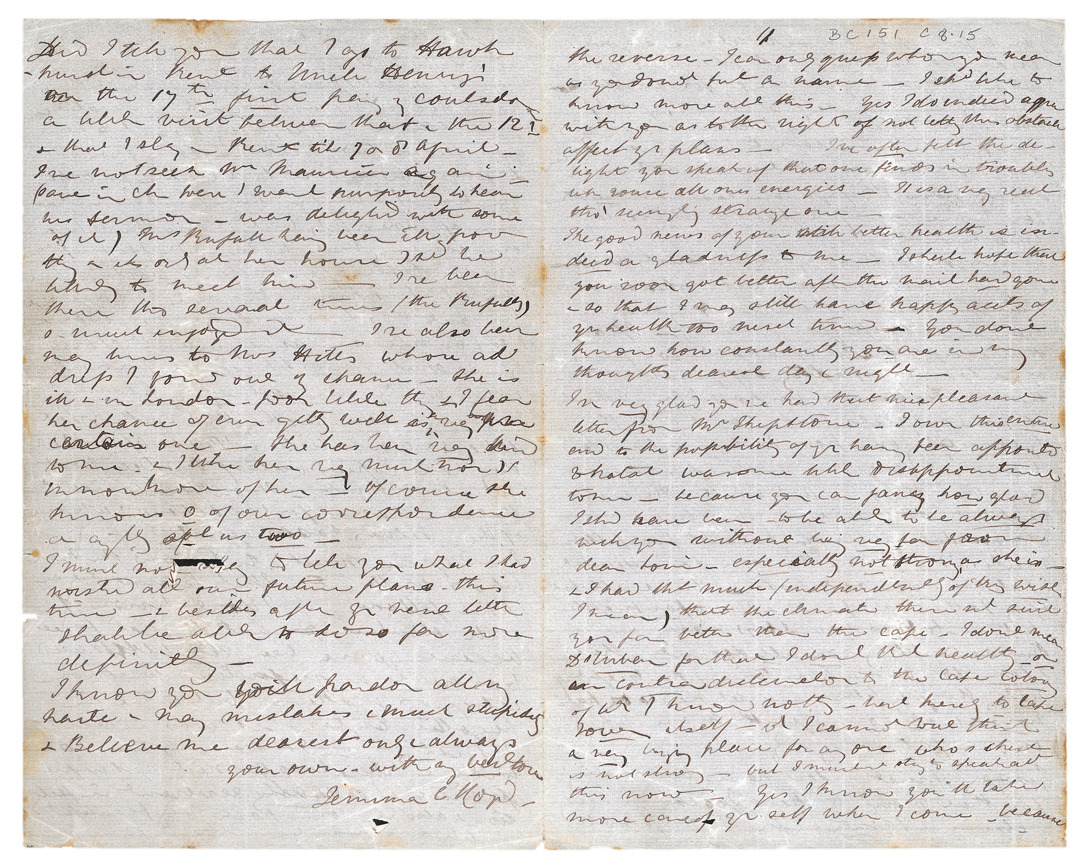 Did I tell you that I go to Hawk
hurst in Kent to Uncle Henry's
on the 17th first paying Coulsdon
a little visit between that & the 12th
& that I stay in Kent til 7 or 8 April —
I've not seen Mr Maurice again —
(save in Ch were I went purposely to hear
his sermon — was delighted with some
of it) Mrs Rufall having been ill
at her house I shd be
likely to meet him — I've been
there tho several times (the Rufalls)
& much enjoyed it — I've also been
many times to Mrs Hites whose ad
dress I found out by chance — She is
ill & in London — poor little thg & I fear
her chance of ever gettg well is a very
one — She has been very kind
to me & I like her very much now I
know more of her — Of course she
knows 0 of our correspondence
or anythg abt us two —
I must not to tell you what I had
wished abt our future plans this
time — & besides after yr next letter
I shall be able to do so far more
definitely —
I know you will pardon all my
haste & many mistakes & much stupidity
& Believe me dearest only & always
your own — with my best love
Jemima C Boyd —
4 BC151 C8.15
the reverse — I can only guess whom you mean
as you dont put a name — I shd like to
know more abt this — Yes I do indeed agree
with you as to the right of not lettg this obstacle
affect yr plans — I've often felt the de-
light you speak of that one finds in troubles
wh rouse all ones energies — It is a very real
tho' seemingly strange one —
The good news of your still better health is in-
deed a gladness to me — I shall hope that
you soon got better after the mail had gone
& so that I may still have happy accts of
yr health too next time — You dont
know how constantly you are in my
thoughts dearest day & night —
I'm very glad you've had that nice pleasant
letter from Mr Shepstone — I own this entire
end to the possibility of yr having been appointed
to Natal was some little disappointment
to me — because you can fancy how glad
I shd have been to be able to be always
with you without being very far from
dear Loui — especially not strong as she is —
& I had tht much (independently of this wish
I mean) that the climate there wd suit
you far better than the Cape — I dont mean
D'Urban for that I dont tht healthy — or
in contradistinction to the Cape Colony
of wh I know nothg — but merely to Cape
Town itself — wh I cannot but think
a very trying place for anyone who's chest
is not strong — but I must not stay to speak abt
this now — Yes I know you'll take
more care of yr self when I come — because